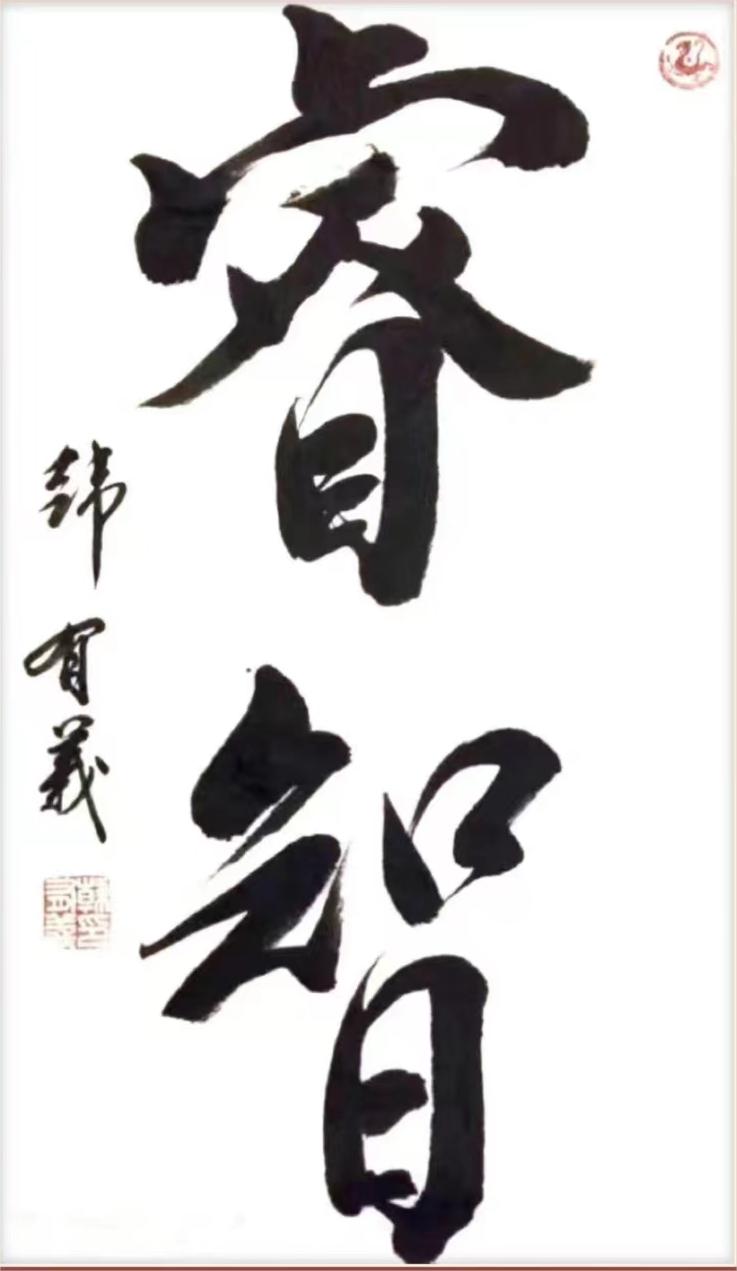 睿智
韓有義